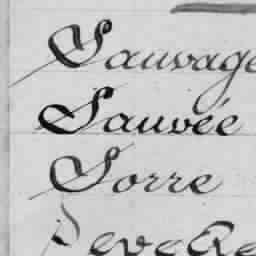 Sauvage
Sauvée
Sorre